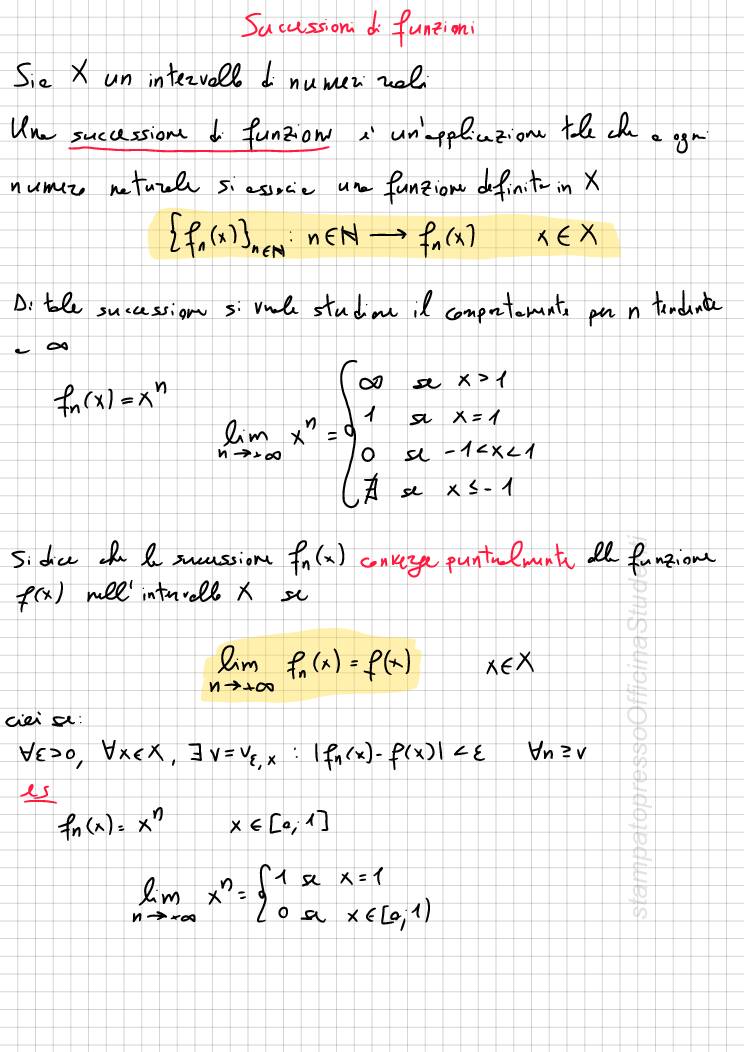 Successioni di funzioni
Sia X un intervallo di numeri reali
Una successione di funzioni è un'applicazione tale che a ogni
numero naturale si associa una funzione definita in X
{fₙ(x)}ₙ∈ℕ : n∈ℕ ⟶ fₙ(x) x∈X
Di tale successione si vuole studiare il comportamento per n tendente
a ∞
fₙ(x) = xⁿ
lim n→+∞ xⁿ = { ∞ se x>1
1 se x=1
0 se -1<x<1
∄ se x≤-1
Si dice che la successione fₙ(x) converge puntualmente alla funzione
f(x) nell'intervallo X se
lim n→+∞ fₙ(x) = f(x) x∈X
cioè se:
∀ε>0, ∀x∈X, ∃ν=ν_ε,x : |fₙ(x)-f(x)|<ε ∀n≥ν
es
fₙ(x) = xⁿ x∈[0,1]
lim n→+∞ xⁿ = { 1 se x=1
0 se x∈[0,1)
stampatopressoOfficinaStudenti